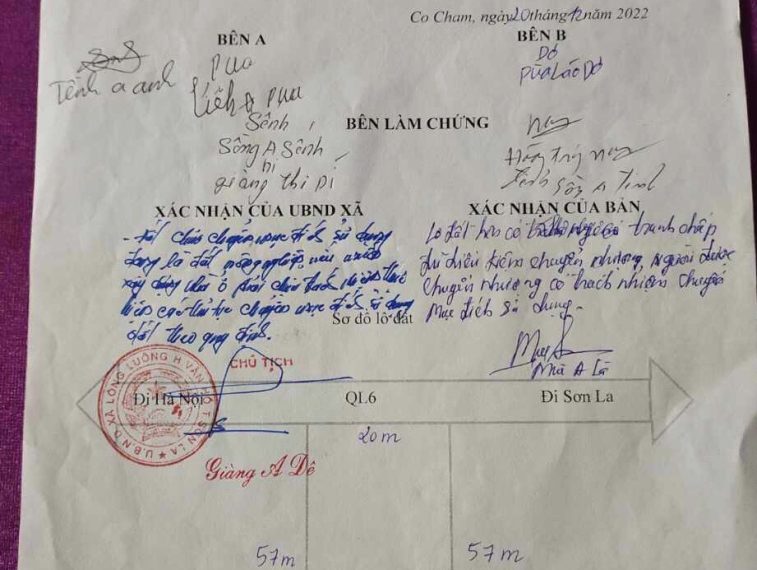 Co Chàm, ngày 20 tháng 12 năm 2022
BÊN A
BÊN B
Tếnh a anh
Pua
Pua
Dơ
Pùa Láo Dơ
BÊN LÀM CHỨNG
Sênh
Sồng A Sênh
Dí
Giàng Thị Dí
Nay
Nay
Sồng A Tính
XÁC NHẬN CỦA UBND XÃ
XÁC NHẬN CỦA BẢN
- Đất chưa chuyển mục đích sử dụng
đang là đất nông nghiệp, nếu muốn
xây dựng nhà ở phải thực
hiện các thủ tục chuyển mục đích sử dụng
đất theo quy định.
Lô đất trên có tranh chấp
đủ điều kiện chuyển nhượng người được
chuyển nhượng có trách nhiệm chuyển
mục đích sử dụng.
Sơ đồ lô đất
CHỦ TỊCH
Mùa A Là
U.B.N.D XÃ LÓNG LUÔNG H. VÂN HỒ T. SƠN LA
Đi Hà Nội
QL6
Đi Sơn La
20m
Giàng A Dê
57m
57m